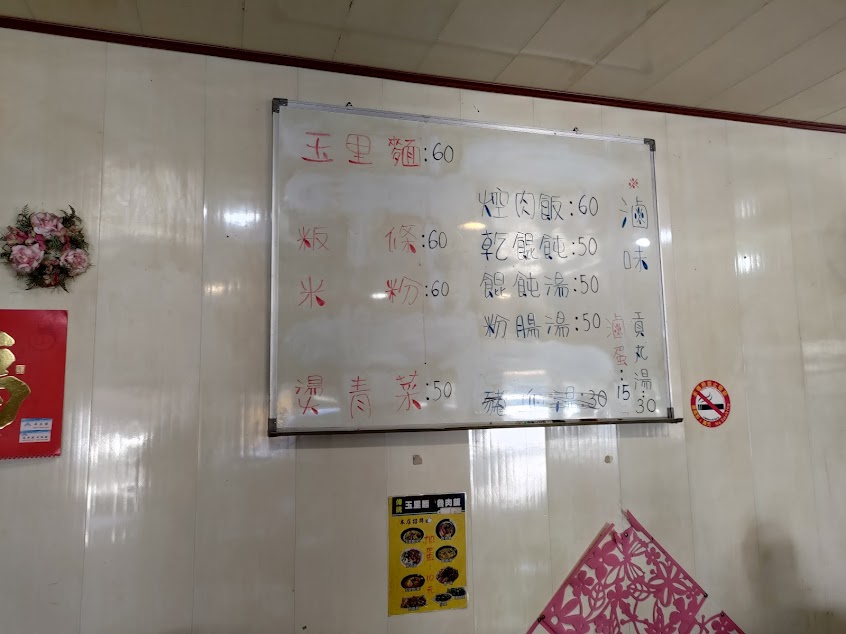 玉里麵:60
粄條:60
米粉:60
燙青菜:50
焢肉飯:60
乾餛飩:50
餛飩湯:50
粉腸湯:50
豬血湯:30
※滷味
滷蛋:15
貢丸湯:30
玉里麵
加蛋10元